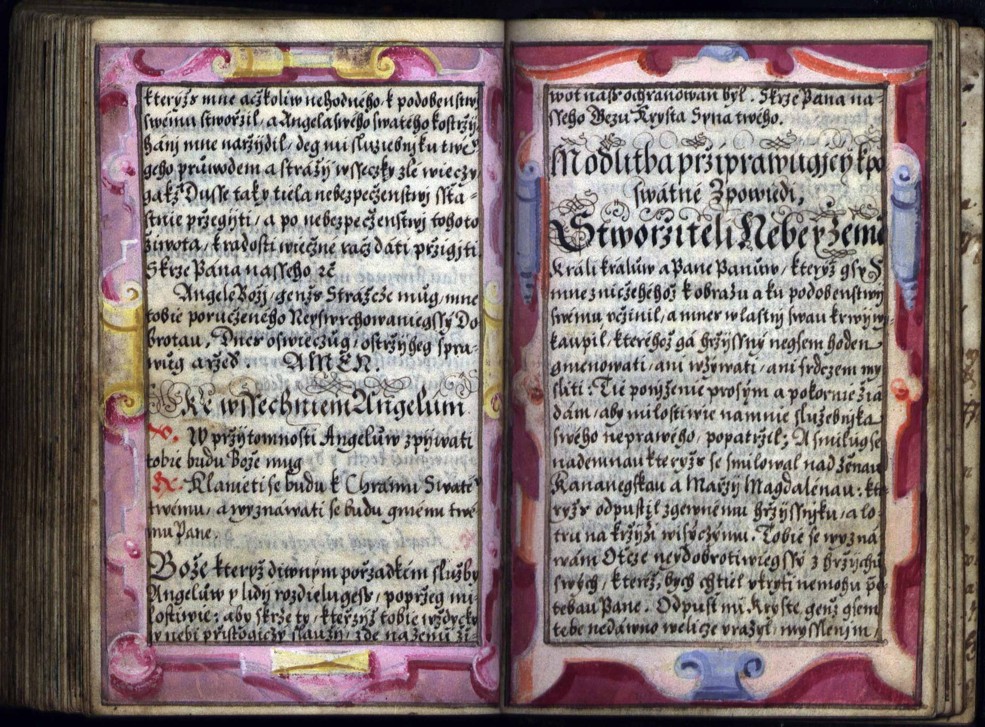 kterýžs mne ačžkoliw nehodného k podobenstwj
swému stworžil, a Angela swého swatého k ostržj-
hánj mne naržjdil, deg mi služiebnjku twé-
geho průwodem a strážj wssečky zlé wieczy
gakž Dusse tak y tiela nebezpečženstwj sstia-
stnie pržegijti, a po nebezpečženstwj tohoto
života, k radosti wiečžné račž dati pržigjti
Skrze Pána nasseho ꝛč
Angele Božj, genžs Strážcže můg, mne
tobie poručženého Neyswrchowaniegssý Do
brotau, Dnes oswieczůg, ostržjheg spra-
wůg a ržeď. AMEN.
Ke wssechniem Angelům
V. W pržjtomnosti Angelůw zpjwati
tobie budu Bože můg
R. Klanieti se budu k Chrámu Swaté
twému, a wyznáwati se budu gménu twé-
mu Pane
Bože kterýž diwným pořzadkém služby
Angelůw y lidj rozdielugess, popržeg mi-
lostiwie: aby skrže ty, kteržjžs tobie wždycky
w nebi přistogiczy slaužj, zde na zemi ži-
wot náss ochranowán byl. Skrže Pána na-
sseho Gezu Krysta Syna twého.
Modlitba pržiprawugjcý k po
swátné Zpowiedi,
Stworžiteli Nebe y Země
Králi králůw a Pane Panůw, kterýž gsy
mne z ničžehéhož k obrazu a ku podobenstwj
swému včžinil, a mne wlastnj swau krwj wy-
kaupil, kteréhož gá hržjssný negsem hoden
gmenowati, ani wžýwati, ani srdczem my
sliti: Tie ponjženie prosým a pokornie žá
dám, aby milostiwie na mnie služebnjka
swého nepráwého, popatržil: A smilůg se
nademnau kterýžs se smilowal nad ženau
Kananegskau a Maržj Magdalénau: kte
rýžs odpustil zgewnému hržjssnjku, a lo-
tru na kržjži wisýczýmu. Tobie se wyzná
wám Otcže neydobrotiwiegssý z hržjchů
swých, kteréž, bych chtiel vkrýti nemohu př
tebau Pane. Odpust mi Kryste, genž gsem
tebe nedáwno welicže vrazyl, mysslenjm,